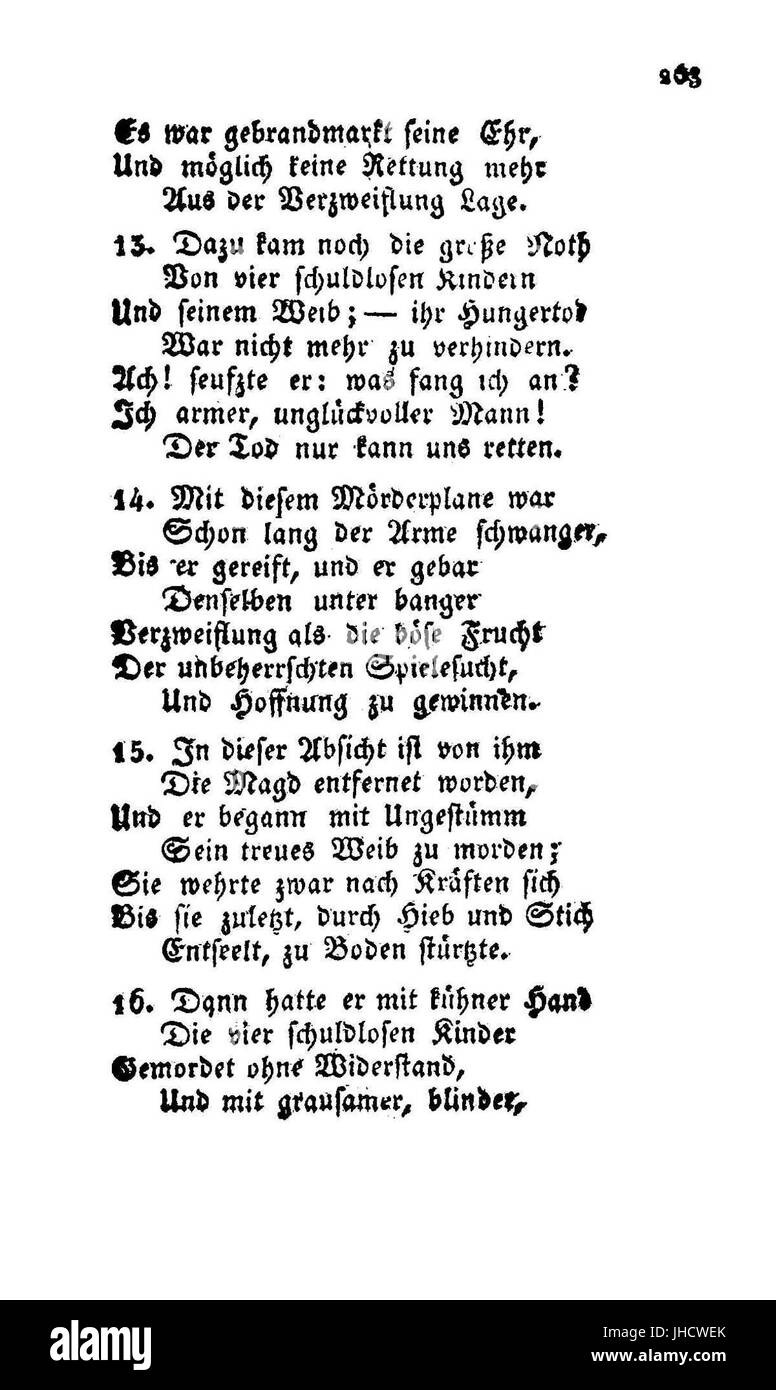 263
Es war gebrandmarkt seine Ehr,
Und möglich keine Rettung mehr
Aus der Verzweiflung Lage.
13. Dazu kam noch die große Noth
Von vier schuldlosen Kindern
Und seinem Weib; — ihr Hungertod
War nicht mehr zu verhindern.
Ach! seufzte er: was fang ich an?
Ich armer, unglückvoller Mann!
Der Tod nur kann uns retten.
14. Mit diesem Mörderplane war
Schon lang der Arme schwanger,
Bis er gereift, und er gebar
Denselben unter banger
Verzweiflung als die böse Frucht
Der unbeherrschten Spielesucht,
Und Hoffnung zu gewinnen.
15. In dieser Absicht ist von ihm
Die Magd entfernet worden,
Und er begann mit Ungestümm
Sein treues Weib zu morden;
Sie wehrte zwar nach Kräften sich
Bis sie zuletzt, durch Hieb und Stich
Entseelt, zu Boden stürtzte.
16. Dann hatte er mit kühner Hand
Die vier schuldlosen Kinder
Gemordet ohne Widerstand,
Und mit grausamer, blinder,
alamy
alamy
Image ID: JHCWEK
www.alamy.com